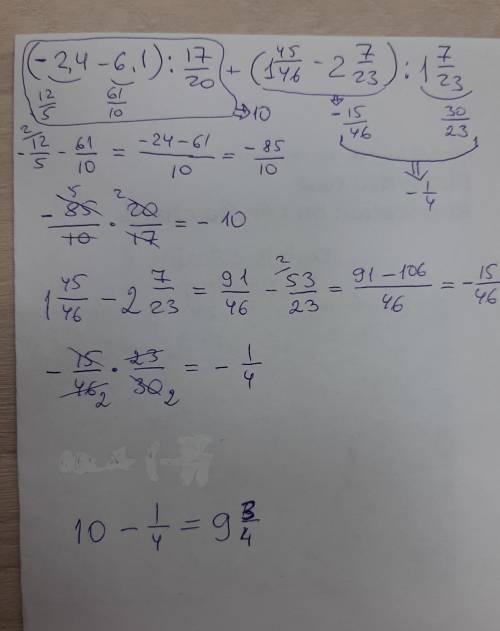 (-2,4 - 6,1) : 17/20 + (1 45/46 - 2 7/23) : 1 7/23
12/5 61/10 ⇒ 10 ⇒ -15/46 30/23
⇒ -1/4
-12/5 ² - 61/10 = (-24-61)/10 = -85/10
-85/10 ⁵ · ² 20/17 = -10
1 45/46 - 2 7/23 = 91/46 - ² 53/23 = (91-106)/46 = -15/46
-15/46 ₂ · 23/30 ₂ = -1/4
10 - 1/4 = 9 3/4